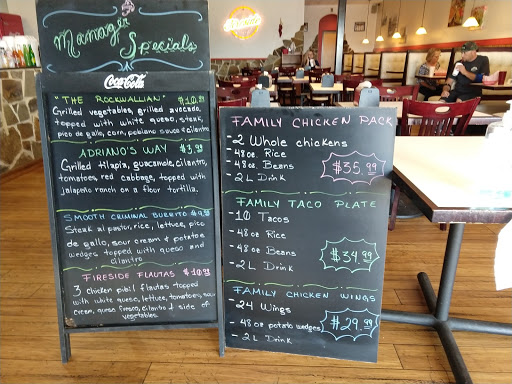 Manager
Specials
Coca-Cola
"THE ROCKWALLIAN" $10.99
Grilled vegetables, grilled avocado,
topped with white queso, steak,
pico de gallo, corn, poblano sauce & cilantro
ADRIANO'S WAY $3.99
Grilled tilapia, guacamole, cilantro,
tomatoes, red cabbage, topped with
jalapeño ranch on a flour tortilla.
SMOOTH CRIMINAL BURRITO $9.99
Steak al pastor, rice, lettuce, pico
de gallo, sour cream & potatoe
wedges topped with queso and
cilantro
FIRESIDE FLAUTAS $10.99
3 chicken pibil flautas topped
with white queso, lettuce, tomatoes, sour
cream, queso fresco, cilantro & side of
vegetables.
FAMILY CHICKEN PACK
- 2 Whole chickens
- 48oz. Rice
- 48oz. Beans
- 2L Drink
$35.99
FAMILY TACO PLATE
- 10 Tacos
- 48oz Rice
- 48oz Beans
- 2L Drink
$34.99
FAMILY CHICKEN WINGS
- 24 Wings
- 48oz potato wedges
- 2L Drink
$29.99